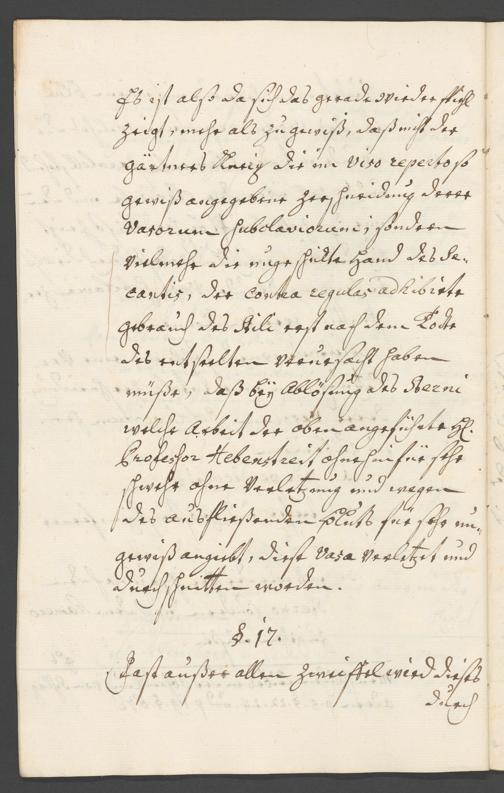 Es ist alß da sich das gerade wiederspihl
zeigt, mehr als zu gewiß, daß nicht der
gärtners Kneip die im viso reperto so
gewiß angegebene zerschneidung derer
Vasorum Subclaviorum; sondern
vielmehr die ungeschickte Hand des Se-
cantis, der contra regulas adhibirte
gebrauch des Stili erst nach dem Todte
des entseelten verursacht haben
müße, daß beÿ Ablößung des Sterni
welche Arbeit der oben angeführte H.
Professor Hebenstreit ohnehin für sehr
schwehr ohne Verletzung und wegen
des ausfließenden Bluts für sehr un-
gewiß angiebt, diese Vasa verletzet und
durchschnitten worden.
§. 17.
Fast außer allen Zweiffel wird dieses
durch